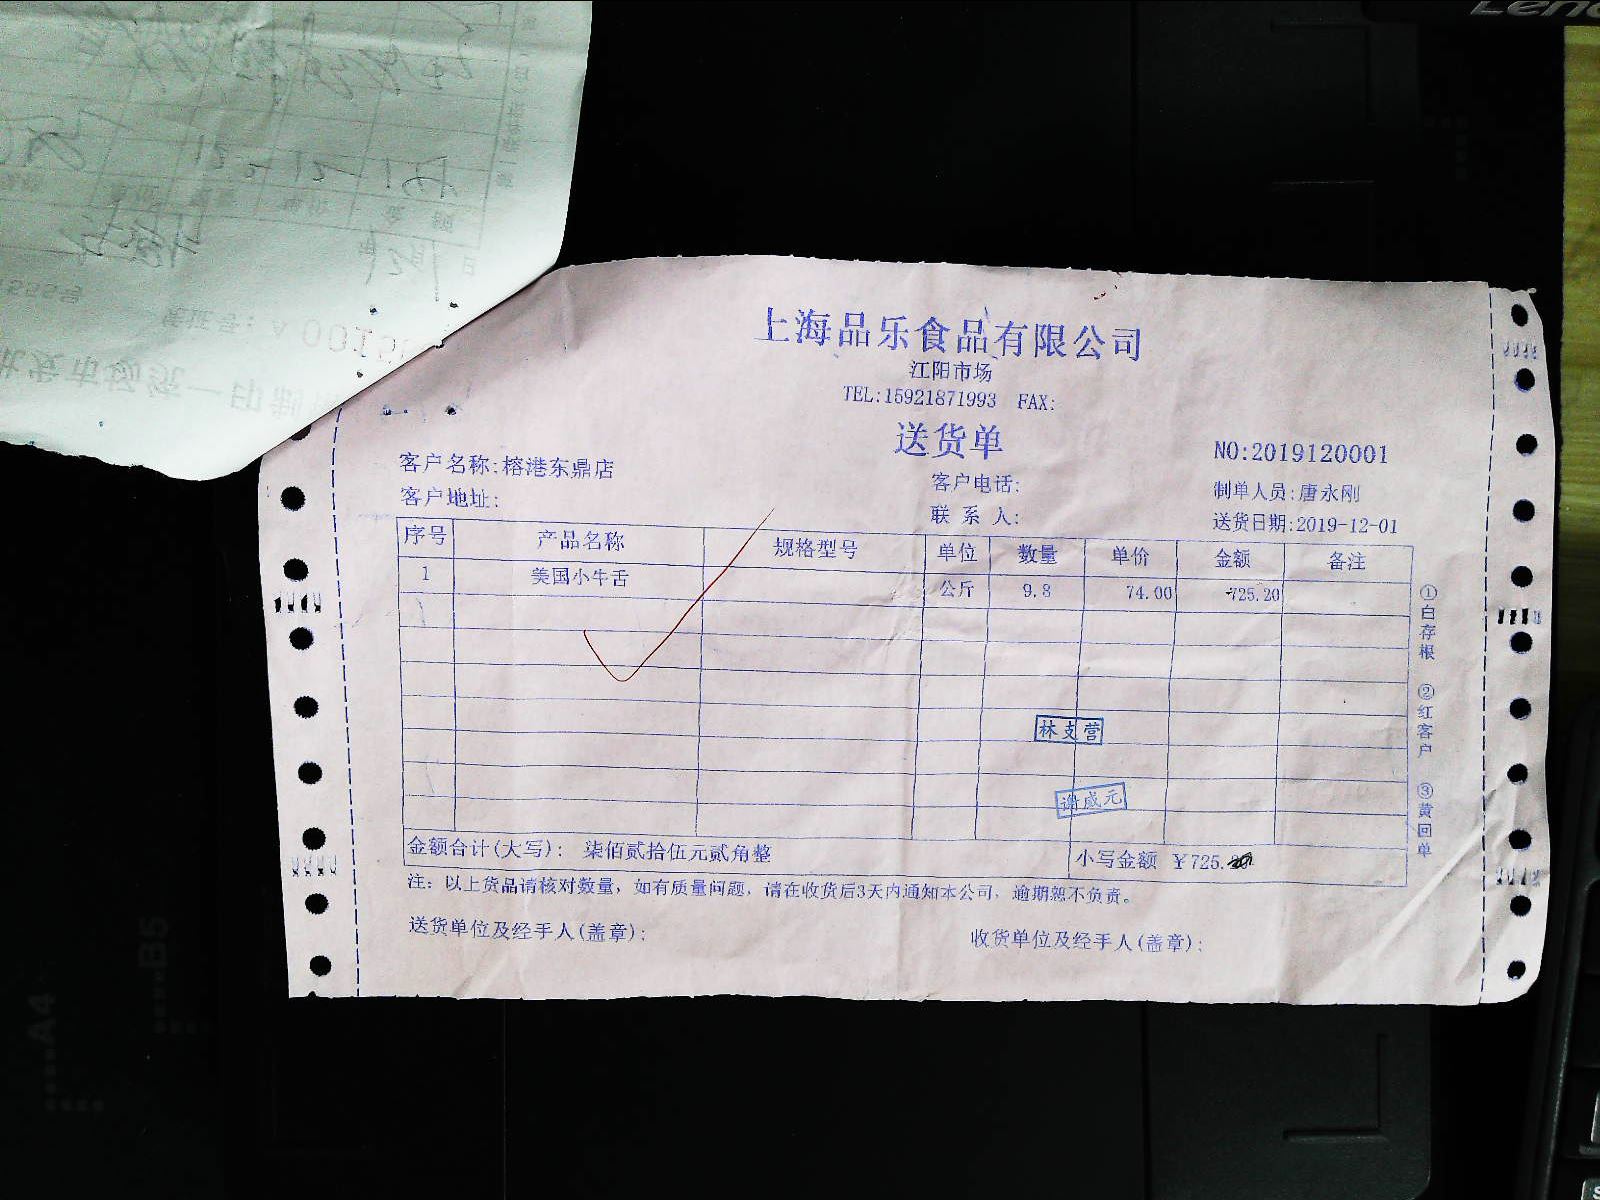 Leno
上海品乐食品有限公司
江阳市场
TEL:15921871993 FAX:
送货单
NO:2019120001
客户名称:榕港东鼎店
客户电话:
制单人员:唐永刚
客户地址:
联系人:
送货日期:2019-12-01
序号 产品名称 规格型号 单位 数量 单价 金额 备注
1 美国小牛舌 公斤 9.8 74.00 725.20
①白存根 ②红客户 ③黄回单
林支营
谢成元
金额合计(大写): 柒佰贰拾伍元贰角整 小写金额 ¥725.
注: 以上货品请核对数量, 如有质量问题, 请在收货后3天内通知本公司, 逾期恕不负责。
送货单位及经手人(盖章): 收货单位及经手人(盖章):
A4
B5